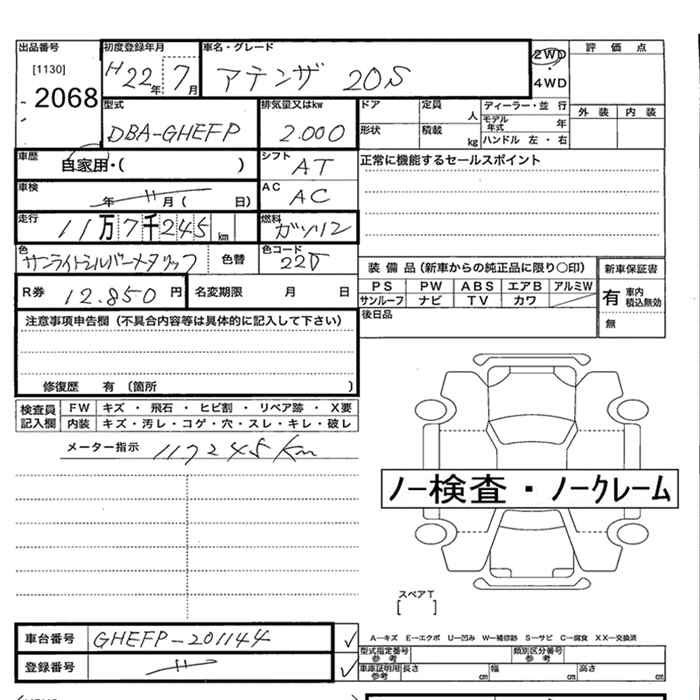 出品番号 初度登録年月 車名・グレード 2WD 評価点
[1130] H22年 7月 アテンザ 20S ・
2068 4WD
型式 排気量又はkw ドア 定員 人 ディーラー・並行 外装 内装
DBA-GHEFP 2.000 形状 積載 kg モデル年式 年
ハンドル 左・右
車歴 自家用・( ) シフト AT 正常に機能するセールスポイント
車検 年 〃 月 ( 日) AC AC
走行 11万7千245 km 燃料 ガソリン
色 サンライトシルバーメタリック 色替 色コード 22D
装備品(新車からの純正品に限り○印) 新車保証書
R券 12.850 円 名変期限 月 日 PS PW ABS エアB アルミW 有 車内積込無効
サンルーフ ナビ TV カワ
注意事項申告欄(不具合内容等は具体的に記入して下さい) 後日品 無
修復歴 有 (箇所 )
検査員記入欄 FW キズ ・ 飛石 ・ ヒビ割 ・ リペア跡 ・ X要
内装 キズ・汚レ・コゲ・穴・スレ・キレ・破レ
メーター指示 117245Km
ノー検査・ノークレーム
スペアT
[ ]
車台番号 GHEFP-201144 ✓
A―キズ E―エクボ U―凹み W―補修跡 S―サビ C―腐食 XX―交換済
型式指定番号 参考 類別区分番号 参考
登録番号 〃 ✓ 車庫証明用 参考 長さ cm 幅 cm 高さ cm